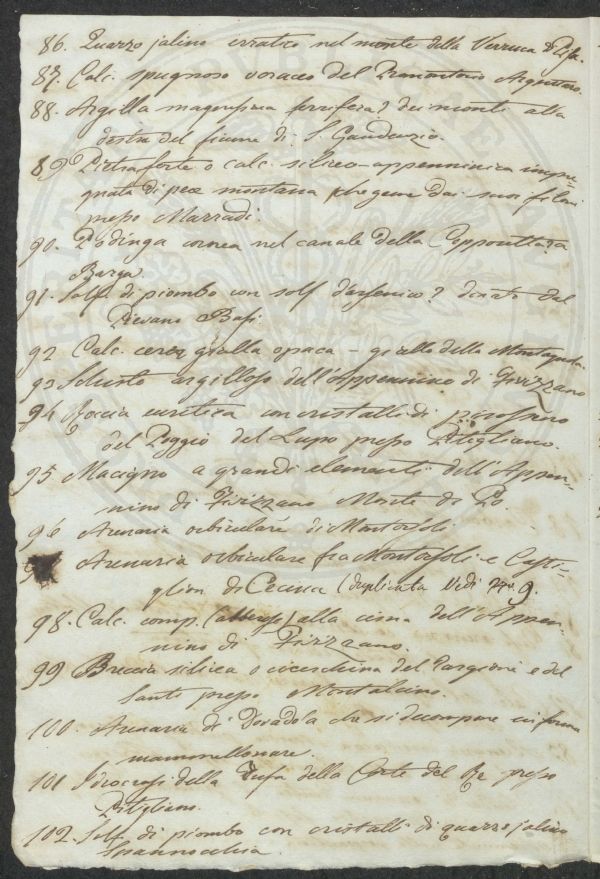 86. Quarzo jalino erratico nel monte della Verruca di Pisa.
87. Calc. spugnoso voraceo del Promontorio Argentaro.
88. Argilla magnesiaca ferrifera? dei monti alla
destra del fiume di S. Gaudenzio.
89 Pietraforte o calc. siliceo-appenninica impre-
gnata di pece montana che geme dai suoi filoni
presso Marradi.
90. Podinga cornea nel canale della
Barga
91. Solf. di piombo con solf. d'arsenico? donato dal
Pievano Basi.
92 Calc. cerea gialla opaca - giallo della Montagnola.
93 Schisto argilloso dell'Appennino di Fivizzano
94 Roccia euritica con cristalli di pirosseno
del Poggio del Lupo presso Pitigliano.
95 Macigno a grandi elementi dell'Appen-
nino di Fivizzano Monte di Po.
96 Arenaria orbiculare di Montorsoli
Arenaria orbiculare fra Montorsoli e Casti-
glion di Cecina (duplicata Vedi N.º 9.
98. Calc. comp. (alberese) alla cima dell'Appen-
nino di Fivizzano.
99 Breccia silicea o cicerchina del Targioni e del
Santi presso Montalcino.
100. Arenaria di Dovadola che si decompone in forma
mammellonare.
101 Idocrasi della Tufa della Corte del Re presso
Pitigliano.
102. Solf. di piombo con cristalli di quarzo jalino